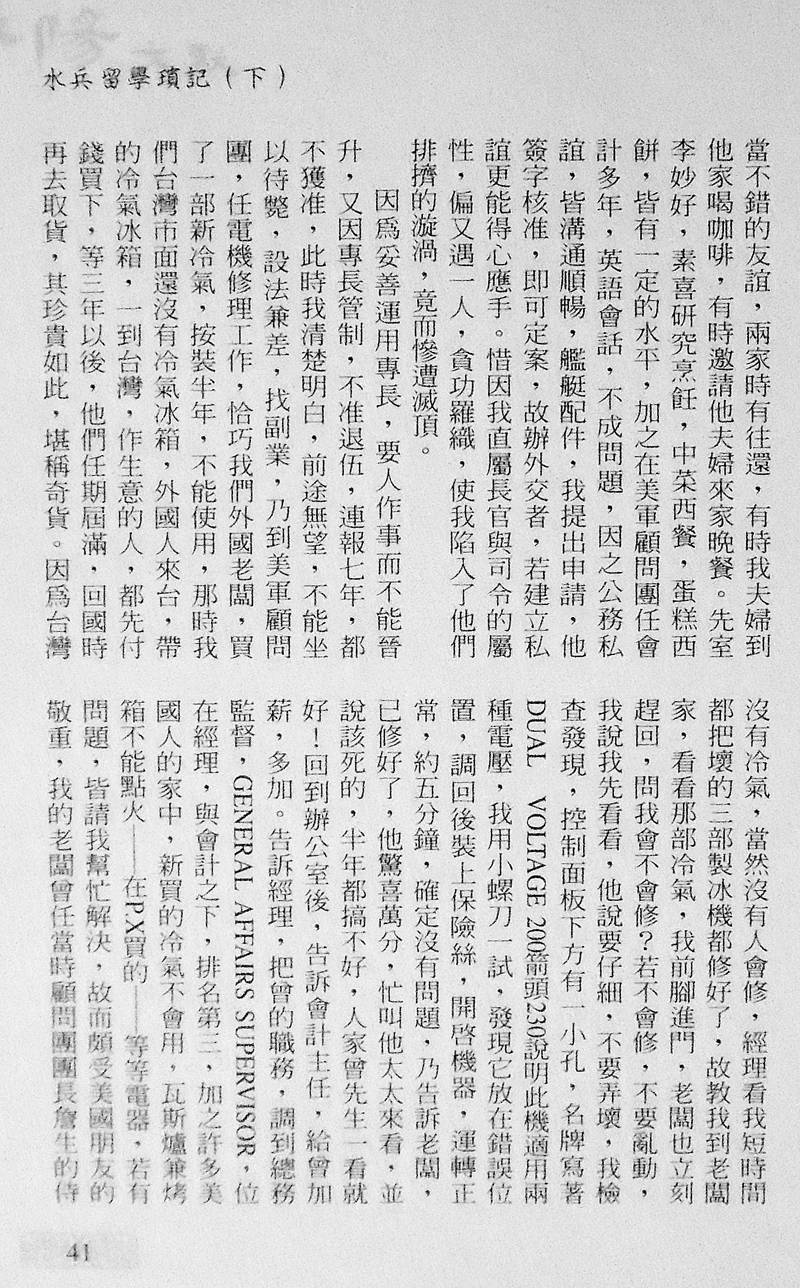 水兵留學瑣記（下）
當不錯的友誼，兩家時有往還，有時我夫婦到
他家喝咖啡，有時邀請他夫婦來家晚餐。先室
李妙好，素喜研究烹飪，中菜西餐，蛋糕西
餅，皆有一定的水平，加之在美軍顧問團任會
計多年，英語會話，不成問題，因之公務私
誼，皆溝通順暢，艦艇配件，我提出申請，他
簽字核准，即可定案，故辦外交者，若建立私
誼更能得心應手。惜因我直屬長官與司令的屬
性，偏又遇一人，貪功羅織，使我陷入了他們
排擠的漩渦，竟而慘遭滅頂。
因爲妥善運用專長，要人作事而不能晉
升，又因專長管制，不准退伍，連報七年，都
不獲准，此時我清楚明白，前途無望，不能坐
以待斃，設法兼差，找副業，乃到美軍顧問
團，任電機修理工作，恰巧我們外國老闆，買
了一部新冷氣，按裝半年，不能使用，那時我
們台灣市面還沒有冷氣冰箱，外國人來台，帶
的冷氣冰箱，一到台灣，作生意的人，都先付
錢買下，等三年以後，他們任期屆滿，回國時
再去取貨，其珍貴如此，堪稱奇貨。因爲台灣
沒有冷氣，當然沒有人會修，經理看我短時間
都把壞的三部製冰機都修好了，故教我到老闆
家，看看那部冷氣，我前腳進門，老闆也立刻
趕回，問我會不會修？若不會修，不要亂動，
我說我先看看，他說要仔細，不要弄壞，我檢
查發現，控制面板下方有一小孔，名牌寫著
DUAL VOLTAGE 200箭頭230說明此機適用兩
種電壓，我用小螺刀一試，發現它放在錯誤位
置，調回後裝上保險絲，開啓機器，運轉正
常，約五分鐘，確定沒有問題，乃告訴老闆，
已修好了，他驚喜萬分，忙叫他太太來看，並
說該死的，半年都搞不好，人家曾先生一看就
好！回到辦公室後，告訴會計主任，給曾加
薪，多加。告訴經理，把曾的職務，調到總務
監督，GENERAL AFFAIRS SUPERVISOR，位
在經理，與會計之下，排名第三，加之許多美
國人的家中，新買的冷氣不會用，瓦斯爐兼烤
箱不能點火——在P.X買的——等等電器，若有
問題，皆請我幫忙解決，故而頗受美國朋友的
敬重，我的老闆曾任當時顧問團團長詹生的侍
41